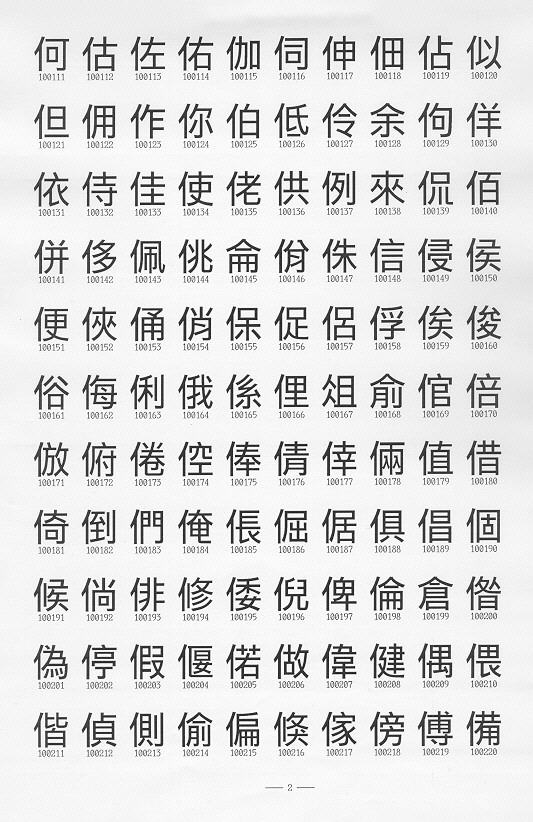 何 估 佐 佑 伽 伺 伸 佃 佔 似
100111 100112 100113 100114 100115 100116 100117 100118 100119 100120
但 佣 作 你 伯 低 伶 余 佝 佯
100121 100122 100123 100124 100125 100126 100127 100128 100129 100130
依 侍 佳 使 佬 供 例 來 侃 佰
100131 100132 100133 100134 100135 100136 100137 100138 100139 100140
併 侈 佩 佻 侖 佾 侏 信 侵 侯
100141 100142 100143 100144 100145 100146 100147 100148 100149 100150
便 俠 俑 俏 保 促 侶 俘 俟 俊
100151 100152 100153 100154 100155 100156 100157 100158 100159 100160
俗 侮 俐 俄 係 俚 俎 俞 倌 倍
100161 100162 100163 100164 100165 100166 100167 100168 100169 100170
倣 俯 倦 倥 俸 倩 倖 倆 值 借
100171 100172 100173 100174 100175 100176 100177 100178 100179 100180
倚 倒 們 俺 倀 倔 倨 俱 倡 個
100181 100182 100183 100184 100185 100186 100187 100188 100189 100190
候 倘 俳 修 倭 倪 俾 倫 倉 偺
100191 100192 100193 100194 100195 100196 100197 100198 100199 100200
偽 停 假 偃 偌 做 偉 健 偶 偎
100201 100202 100203 100204 100205 100206 100207 100208 100209 100210
偕 偵 側 偷 偏 倏 傢 傍 傅 備
100211 100212 100213 100214 100215 100216 100217 100218 100219 100220
— 2 —